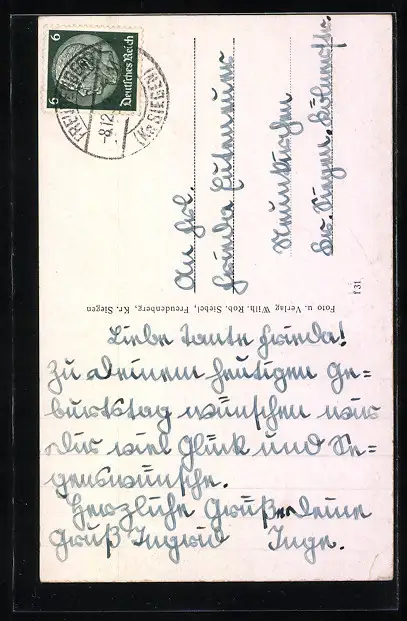 6 Deutsches Reich 6
FREUDENBERG
-8.12.
(Kr. SIEGEN)
An Frl.
Frieda Gutenmuer
Neunkirchen
Krs. Siegen, Kölnerstr.
Foto u. Verlag Wilh. Rob. Siebel, Freudenberg, Kr. Siegen
f 31
Liebe Tante Frieda!
Zu Deinem heutigen Ge=
burtstag wünschen wir
Dir viel Glück und Se=
genswünsche.
Herzliche Grüße Deine
Gruß Ingrid Inge.